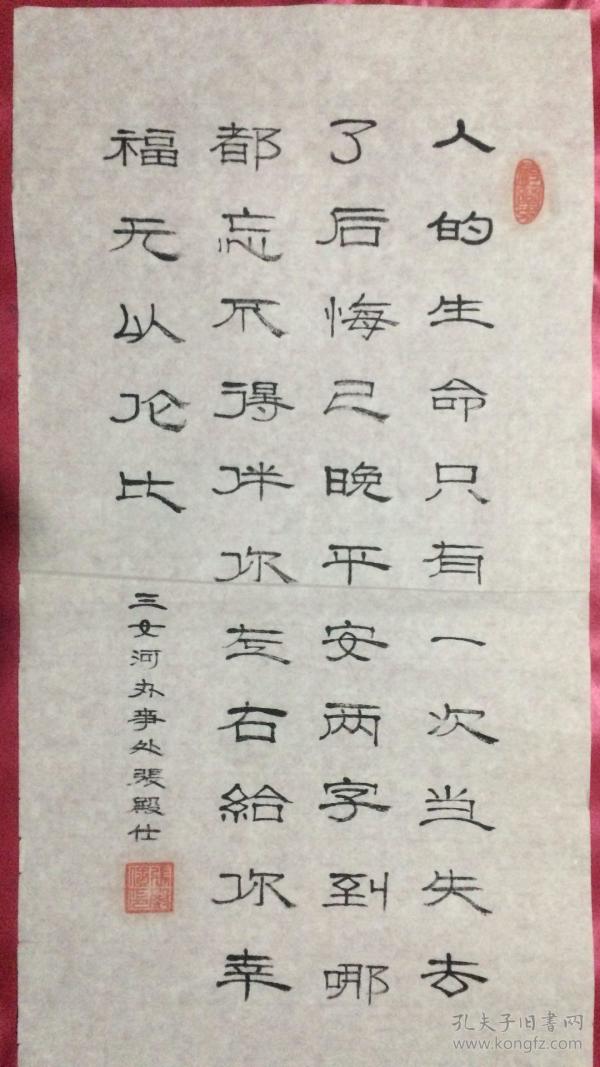 人的生命只有一次当失去
了后悔已晚平安两字到哪
都忘不得伴你左右给你幸
福无以伦比
三女河办事处張殿仕
孔夫子旧書网
www.kongfz.com